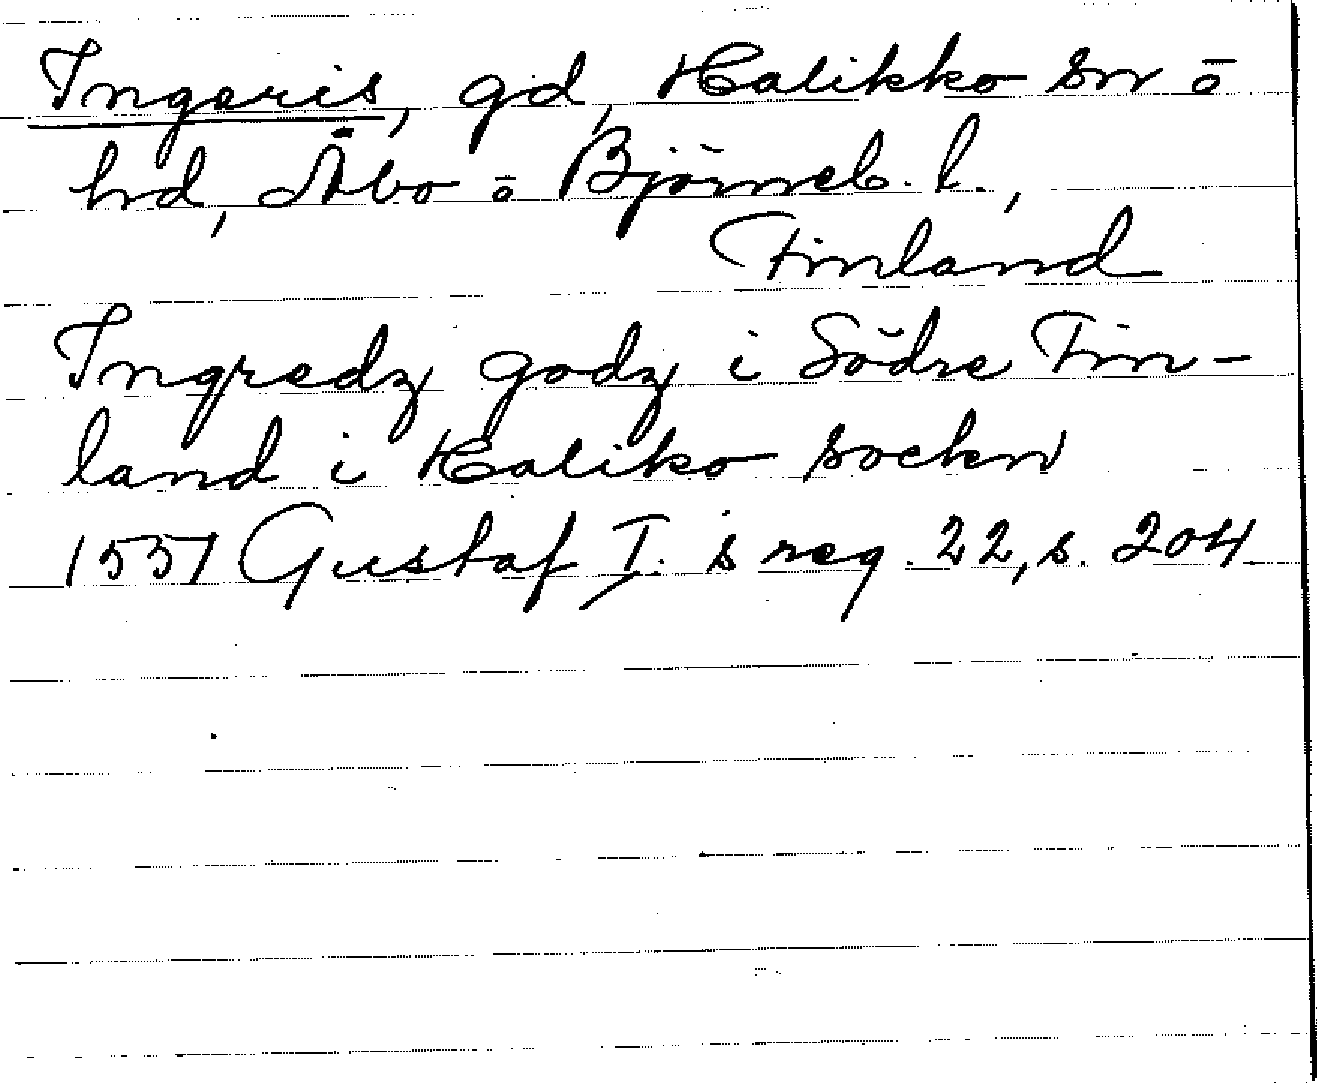 Ingeris, gd, Halikko sn o
hd, Åbo o Björneb. l.,
Finland
Ingredz godz i Södre Fin-
land i Haliko sockn
1551 Gustaf I. s reg. 22, s. 204